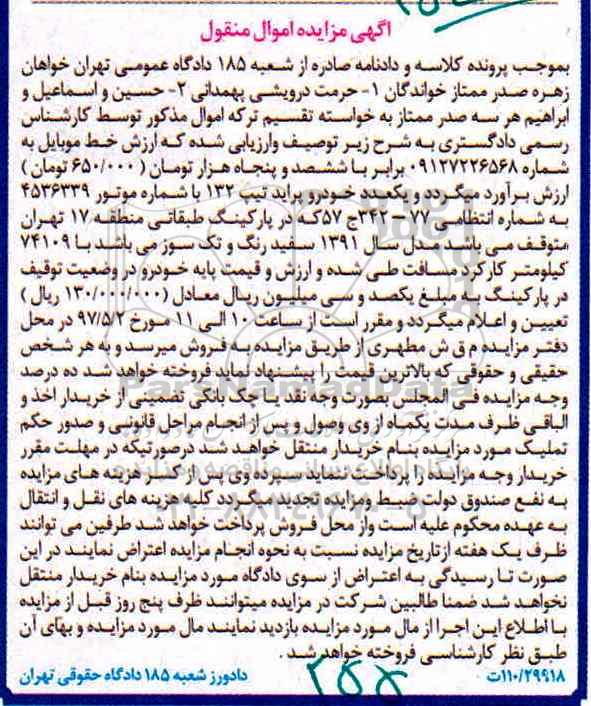 آگهی مزایده اموال منقول
بموجب پرونده کلاسه و دادنامه صادره از شعبه ۱۸۵ دادگاه عمومی تهران خواهان
زهره صدر ممتاز خواندگان ۱- حرمت درویشی پهمدانی ۲- حسین و اسماعیل و
ابراهیم هر سه صدر ممتاز به خواسته تقسیم ترکه اموال مذکور توسط کارشناس
رسمی دادگستری به شرح زیر توصیف وارزیابی شده که ارزش خط موبایل به
شماره ۰۹۱۲۷۲۲۶۵۶۸ برابر با ششصد و پنجاه هزار تومان ( ۶۵۰/۰۰۰ تومان )
ارزش برآورد میگردد و یکعدد خودرو پراید تیپ ۱۳۲ با شماره موتور ۴۵۳۶۳۳۹
به شماره انتظامی ۷۷ – ۳۴۲ج ۵۷که در پارکینگ طبقاتی منطقه ۱۷ تهران
متوقف می باشد مدل سال ۱۳۹۱ سفید رنگ و تک سوز می باشد با ۷۴۱۰۹
کیلومتر کارکرد مسافت طی شده و ارزش و قیمت پایه خودرو در وضعیت توقیف
در پارکینگ به مبلغ یکصد و سی میلیون ریال معادل (۱۳۰/۰۰۰/۰۰۰ ریال )
تعیین و اعلام میگردد و مقرر است از ساعت ۱۰ الی ۱۱ مورخ ۹۷/۵/۲ در محل
دفتر مزایده م ق ش مطهری از طریق مزایده به فروش میرسد و به هر شخص
حقیقی و حقوقی که بالاترین قیمت را پیشنهاد نماید فروخته خواهد شد ده درصد
وجه مزایده فی المجلس بصورت وجه نقد یا چک بانکی تضمینی از خریدار اخذ و
الباقی ظرف مدت یکماه از وی وصول و پس از انجام مراحل قانونی و صدور حکم
تملیک مورد مزایده بنام خریدار منتقل خواهد شد درصورتیکه در مهلت مقرر
خریدار وجه مزایده را پرداخت ننماید سپرده وی پس از کسر هزینه های مزایده
به نفع صندوق دولت ضبط ومزایده تجدید میگردد کلیه هزینه های نقل و انتقال
به عهده محکوم علیه است واز محل فروش پرداخت خواهد شد طرفین می توانند
ظرف یک هفته ازتاریخ مزایده نسبت به نحوه انجام مزایده اعتراض نمایند در این
صورت تا رسیدگی به اعتراض از سوی دادگاه مورد مزایده بنام خریدار منتقل
نخواهد شد ضمنا طالبین شرکت در مزایده میتوانند ظرف پنج روز قبل از مزایده
با اطلاع این اجرا از مال مورد مزایده بازدید نمایند مال مورد مزایده و بهای آن
طبق نظر کارشناسی فروخته خواهد شد .
۱۱۰/۲۹۹۱۸ت دادورز شعبه ۱۸۵ دادگاه حقوقی تهران
ParsNamadData
۰۲۱-۸۸۳۴۹۶۷۰-۵